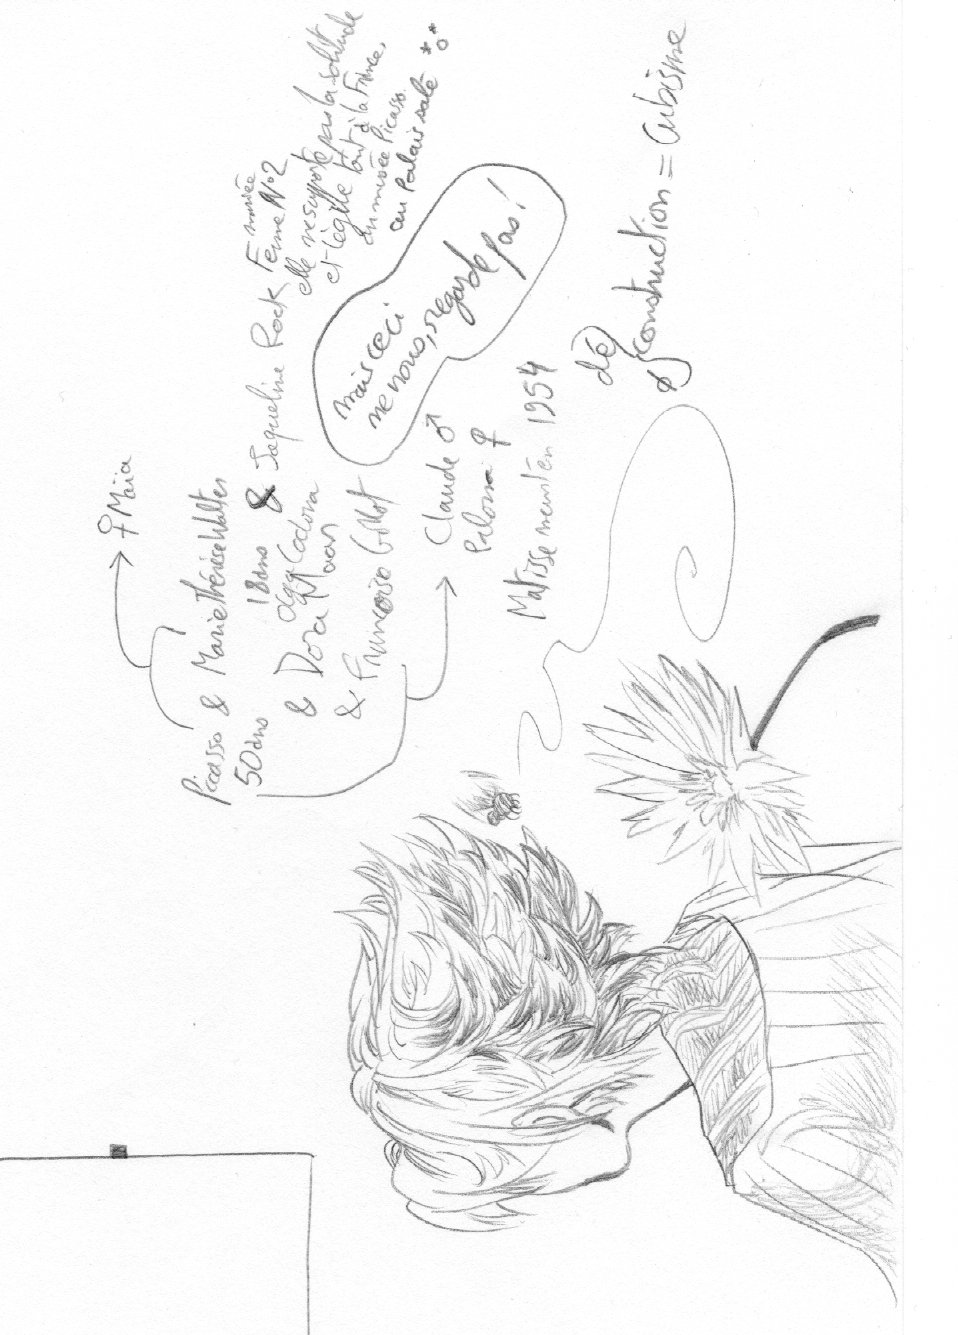 ♀ Maïa
Picasso & Marie Thérèse Walter
50ans 18ans & Jaqueline Rock Femme N°2
musée
elle ne supporte pas la solitude
et lègue tout à la France,
du musée Picasso.
au Palais salé
& Dora Maar
& Françoise Gillot
Claude ♂
♀
mais ceci
ne nous regarde pas !
Matisse meurt en 1954
dé
construction = cubisme